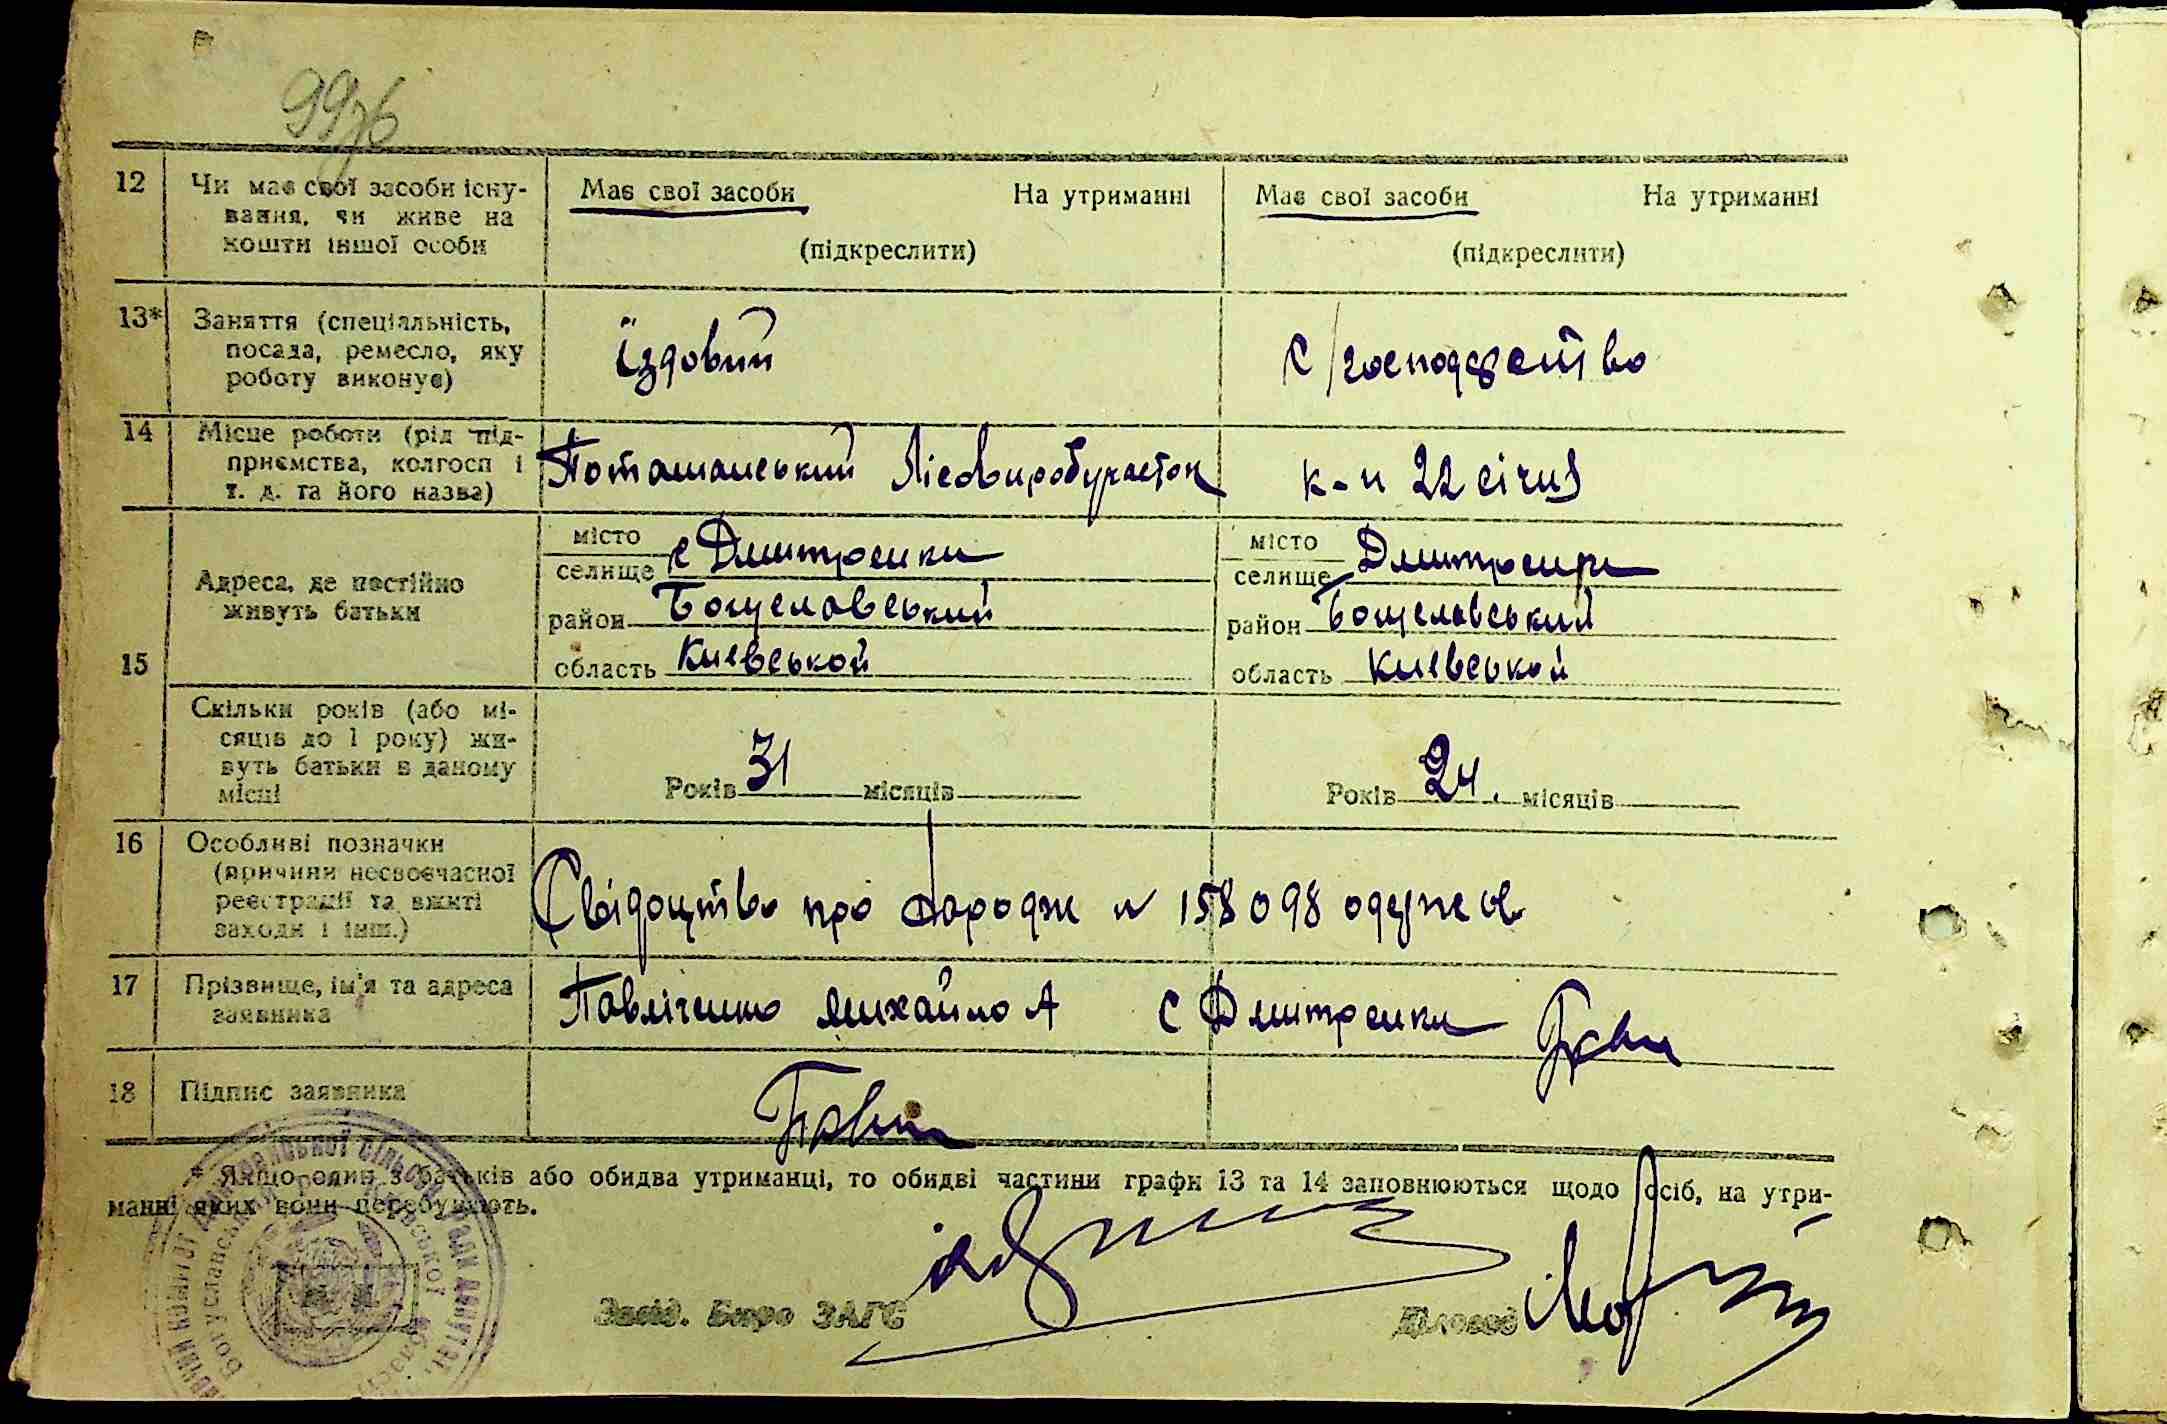 99зб
12 Чи має свої засоби існу- Має свої засоби На утриманні Має свої засоби На утриманні
вання, чи живе на
кошти іншої особи (підкреслити) (підкреслити)
13* Заняття (спеціальність,
посада, ремесло, яку їздовий с/господарство
роботу виконує)
14 Місце роботи (рід під-
приємства, колгосп і Поташанський к-п 22 січня
т. д. та його назва)
15 Адреса, де постійно
живуть батьки
місто
селище с Дмитренки
район Богуславський
область Киевськой
місто
селище Дмитренки
район Богуславський
область Киевськой
Скільки років (або мі-
сяців до 1 року) жи-
вуть батьки в даному
місці
Років 31 місяців Років 24. місяців
16 Особливі позначки
(причини несвоєчасної
реєстрації та вжиті
заходи і інш.)
Свідоцтво про народж N 158098 одержав
17 Прізвище, ім'я та адреса
заявника
Павліченко Михайло А с Дмитренки Павл
18 Підпис заявника Павл
* Якщо один з батьків або обидва утриманці, то обидві частини графи 13 та 14 заповнюються щодо осіб, на утри-
манні яких вони перебувають.
Завід. Бюро ЗАГС Діловод